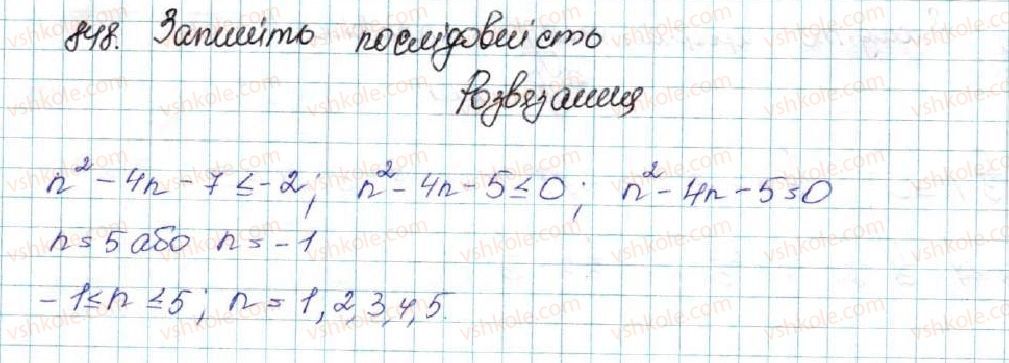 848. Запишіть послідовність
Розвязання
n² - 4n - 7 ≤ -2; n² - 4n - 5 ≤ 0; n² - 4n - 5 = 0
n = 5 або n = -1
-1 ≤ n ≤ 5; n = 1, 2, 3, 4, 5.